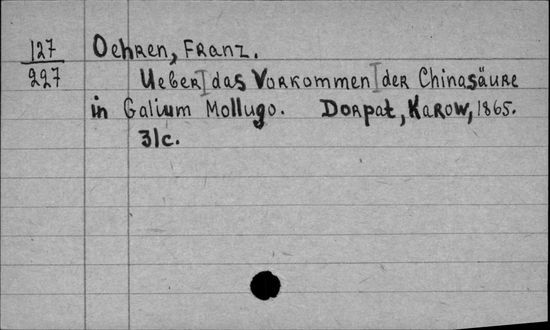 127 Oehren, Franz.
227 Ueber das Vorkommen der Chinasäure
in Galium Mollugo. Dorpat, Karow, 1865.
31c.